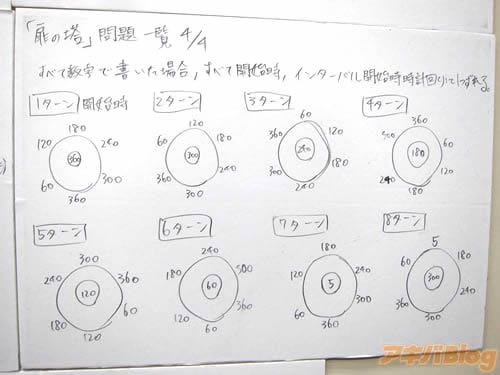 「扉の塔」問題一覧 4/4
すべて数字で書いた場合，すべて開始時，インターバル開始時時計回りに1つずれる。
1ターン 開始時
180
120 240
300
60 300
360
2ターン
120
60 180
300
360 240
300
3ターン
60
360 120
240
300 180
240
4ターン
360
300 60
180
240 120
180
5ターン
300
240 360
120
180 60
120
6ターン
240
180 300
60
120 360
60
7ターン
180
120 240
5
60 300
360
8ターン
5
60 180
300
360 240
300
アキバBlog